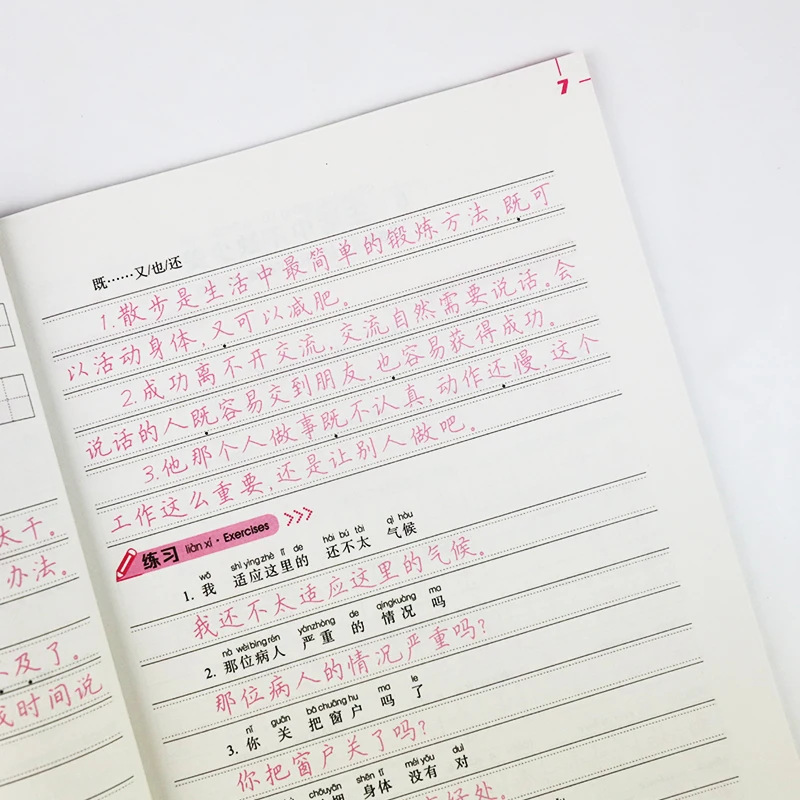 7
既……又/也/还
1.散步是生活中最简单的锻炼方法，既可
以活动身体，又可以减肥。
2.成功离不开交流，交流自然需要说话。会
说话的人既容易交到朋友，也容易获得成功。
3.他那个人做事既不认真，动作还慢，这个
工作这么重要，还是让别人做吧。
练习 liàn xí · Exercises
wǒ shì yìng zhè lǐ de hái bú tài qì hòu
1. 我 适应这里的 还不太 气候
我还不太适应这里的气候。
nà wèi bìng rén yánzhòng de qíngkuàng ma
2. 那位病人 严重 的 情况 吗
那位病人的情况严重吗？
nǐ guān bǎ chuāng hu ma le
3. 你 关 把窗户 吗 了
你把窗户关了吗？
chōuyān shēn tǐ méi yǒu duì
身体 没有 对
好处。
太干。
办法。
及了。
时间说